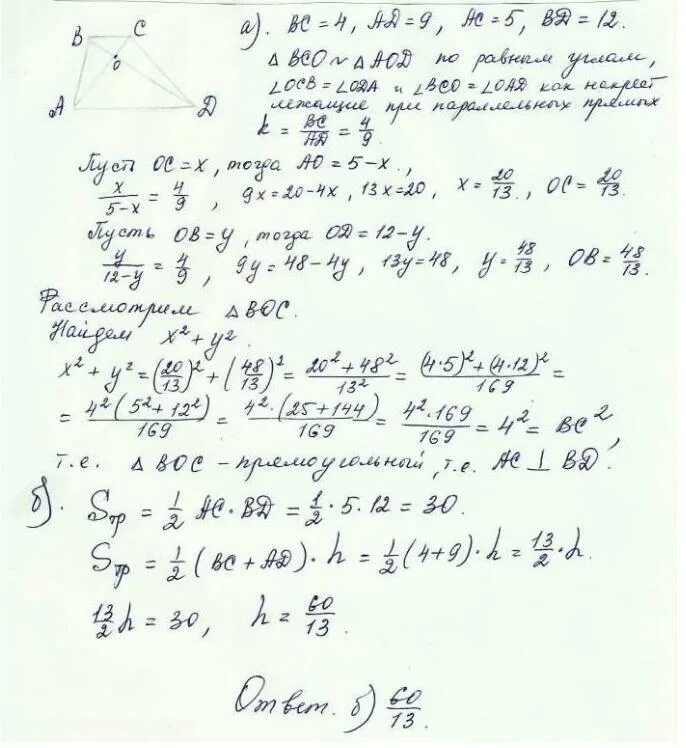 B C
O
A D
а). BC = 4, AD = 9, AC = 5, BD = 12.
△ BCO ~ △ AOD по равным углам,
∠OCB = ∠ODA и ∠BCO = ∠OAD как накрест
лежащие при параллельных прямых
k = BC/AD = 4/9.
Пусть OC = x, тогда AO = 5 - x.,
x/(5-x) = 4/9, 9x = 20 - 4x, 13x = 20, x = 20/13., OC = 20/13.
Пусть OB = y, тогда OD = 12 - y.
y/(12-y) = 4/9, 9y = 48 - 4y, 13y = 48, y = 48/13, OB = 48/13.
Рассмотрим △ BOC.
Найдем x² + y².
x² + y² = (20/13)² + (48/13)² = (20² + 48²)/13² = ((4·5)² + (4·12)²)/169 =
= 4²(5² + 12²)/169 = 4²·(25 + 144)/169 = 4²·169/169 = 4² = BC²,
т.е. △ BOC - прямоугольный, т.е. AC ⊥ BD.
б). Sтр = 1/2 AC · BD = 1/2 · 5 · 12 = 30.
Sтр = 1/2 (BC + AD) · h = 1/2 (4 + 9) · h = 13/2 · h.
13/2 h = 30, h = 60/13.
Ответ. б) 60/13.